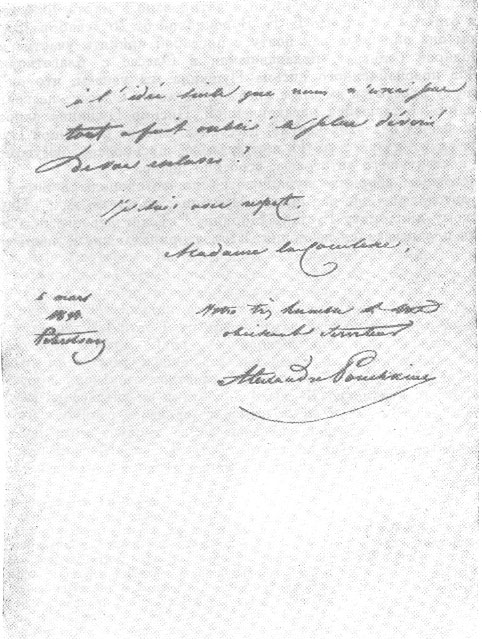 à l'idée seule que vous n'avez pas
tout à fait oublié le plus dévoué
De vos esclaves?
Je suis avec respect.
Madame la Comtesse,
5 mars
1834
Pétersbourg
Votre très humble et très
obéissant serviteur
Alexandre Pouchkine